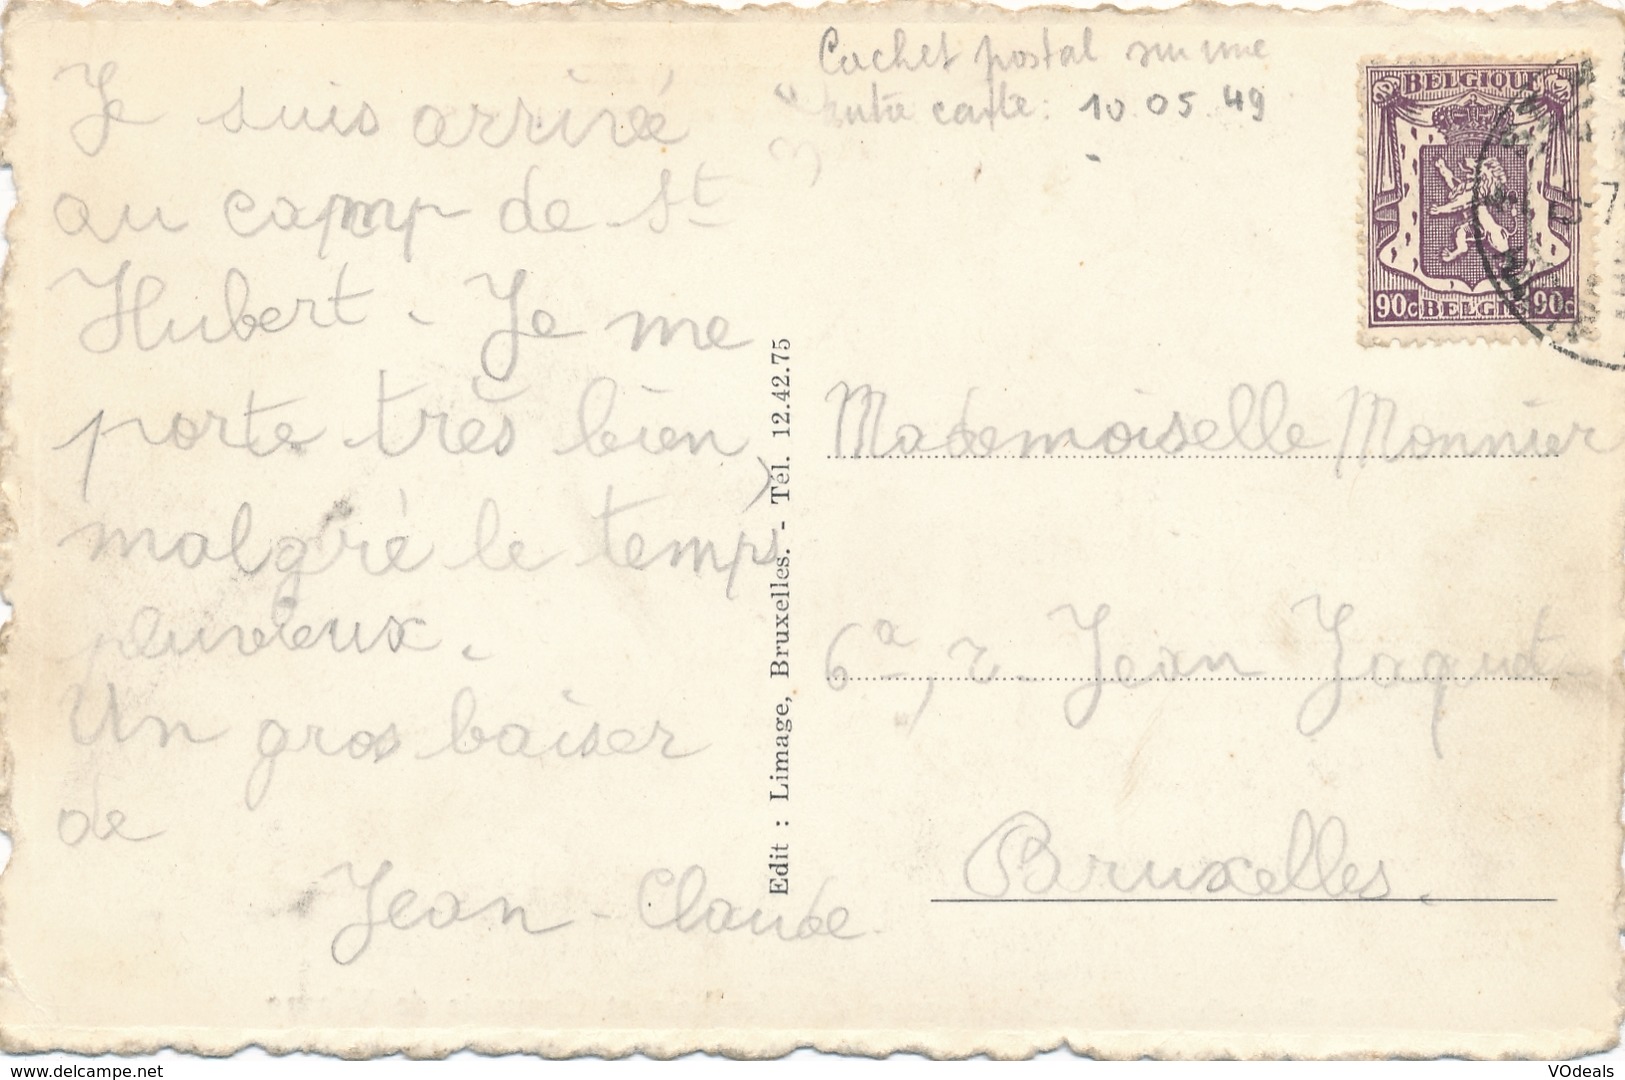 Je suis arrivé
au camp de St
Hubert. Je me
porte très bien
malgré le temps
pluvieux.
Un gros baiser
de
Jean-Claude
Edit : Limage, Bruxelles. - Tél. 12.42.75
Cachet postal sur une
autre carte: 10.05.49
BELGIQUE
90c BELGIË 90c
Mademoiselle Monnier
6a, r. Jean Jaquet
Bruxelles.
www.delcampe.net
VOdeals